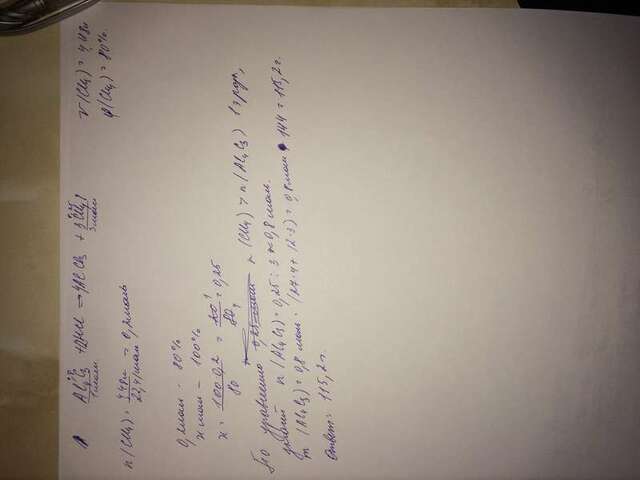 Al₄C₃ + 12HCl → 4AlCl₃ + 3CH₄↑
1 моль 3 моль
V(CH₄) = 4,48л
φ(CH₄) = 80%.
n(CH₄) = 4,48л / 22,4л/моль = 0,2моль
0,2моль - 80%
x моль - 100%
x = 100·0,2 / 80 = 20 / 80 = 0,25
По уравнению n(CH₄) > n(Al₄C₃) в 3 раза,
значит n(Al₄C₃) = 0,25 : 3 ≈ 0,8 моль.
m(Al₄C₃) = 0,8 моль · (27·4 + 12·3) = 0,8моль · 144 = 115,2г.
Ответ: 115,2г.